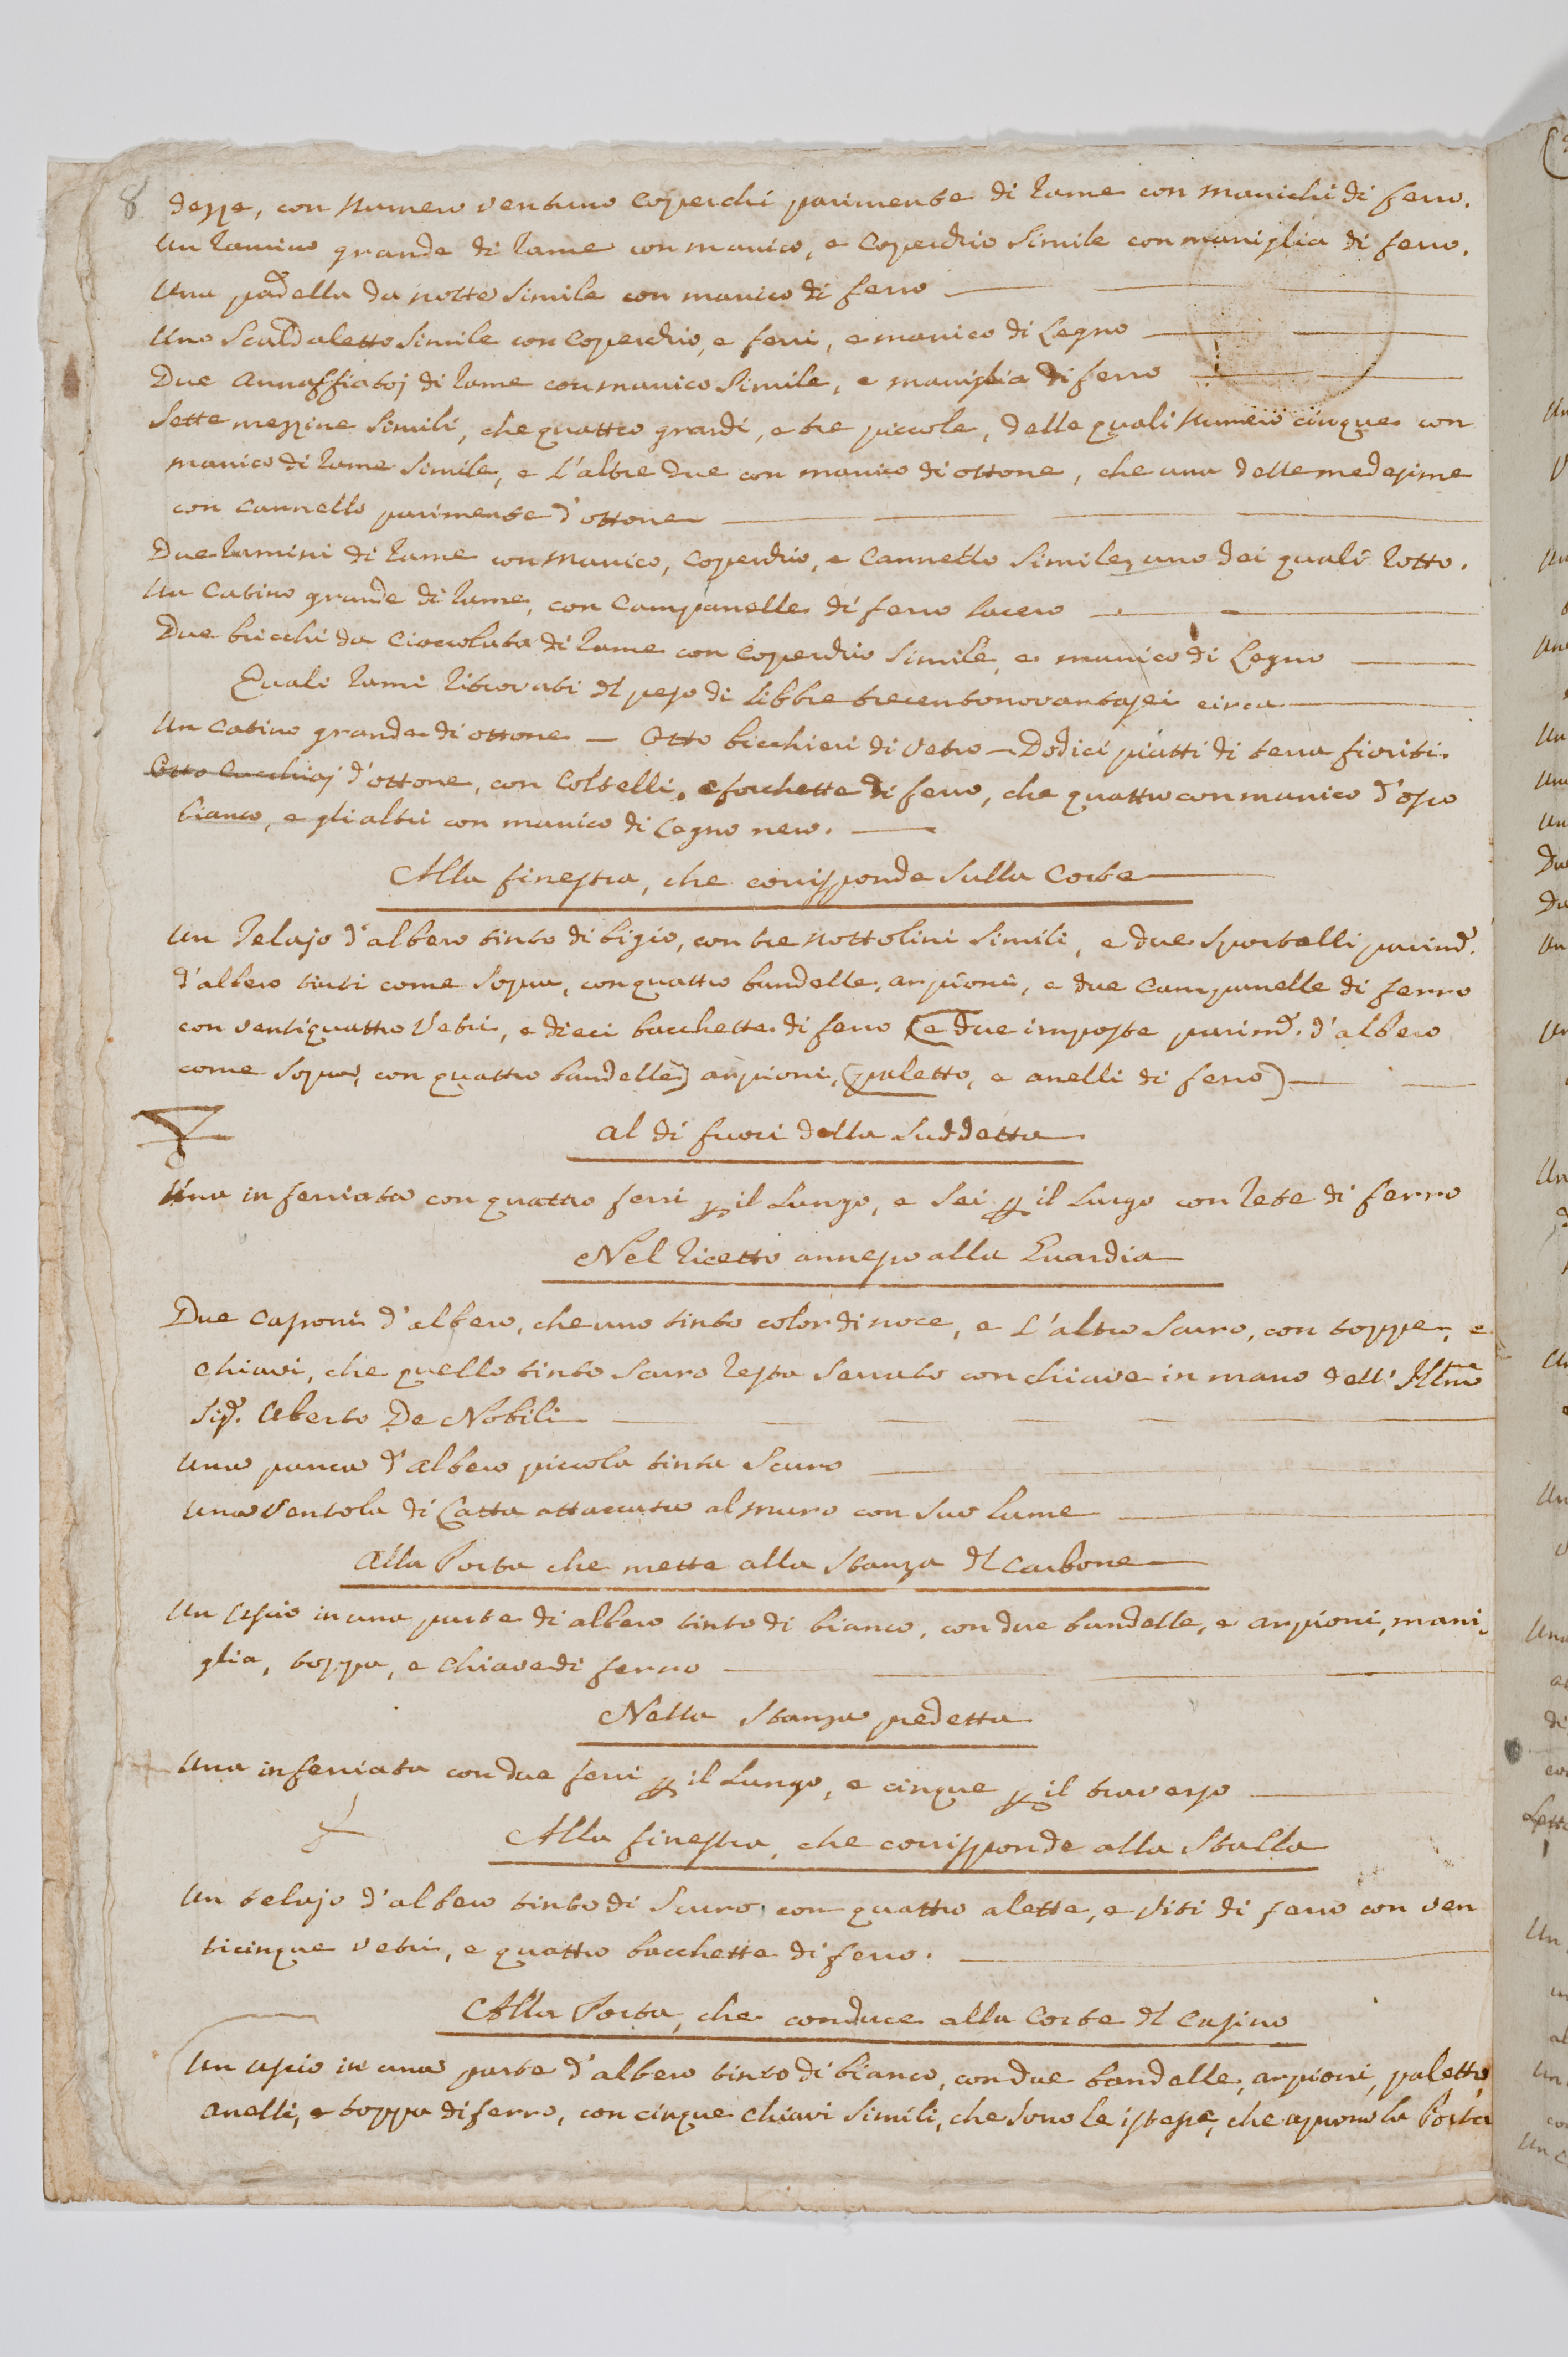 8. dezze, con Numero ventuno Coperchi parimente di Rame con manichi di ferro.
Un Ramino grande di Rame con manico, e Coperchio Simile con maniglia di ferro.
Una padella da notte Simile con manico di ferro
Uno Scaldaletto Simile con Coperchio, e ferri, e manico di Legno
Due Annaffiatoj di Rame con manico Simile, e maniglia di ferro
Sette mezzine Simili, che quattro grandi, e tre piccole, delle quali Numero cinque con
manico di Rame Simile, e L'altre due con manico di ottone, che una delle medesime
con Cannello parimente d'ottone
Due Ramini di Rame con Manico, Coperchio, e Cannello Simile, uno dei quali Rotto.
Un Catino grande di Rame, con Campanelle di ferro lacero
Due bricchi da Cioccolata di Rame con Coperchio Simile, e manico di Legno
Quali Rami Ritrovati del peso di libbre trecentonovantasei circa
Un Catino grande di ottone — Otto bicchieri di Vetro — Dodici piatti di terra fioriti.
Otto Cucchiaj d'ottone, con Coltelli, e forchette di ferro, che quattro con manico d'osso
bianco, e gli altri con manico di Legno nero.
Alla finestra, che corrisponde sulla Corte
Un Telajo d'albero tinto di bigio, con tre Nottolini Simili, e due Sportelli parimd.
d'albero tinti come Sopra, con quattro bandelle, arpioni, e due Campanelle di ferro
con ventiquattro Vetri, e dieci bacchette di ferro (e due imposte parimd. d'albero
come Sopra, con quattro bandelle) arpioni, (paletto, e anelli di ferro)
al di fuori della Suddetta
Una inferriata con quattro ferri p il Lungo, e Sei p il Largo con Rete di ferro
Nel Ricetto annesso alla Guardia
Due Cassoni d'albero, che uno tinto color di noce, e L'altro Scuro, con toppe, e
Chiavi, che quello tinto Scuro Resta Serrato con chiave in mano dell' Illmo
Sigr. Uberto De Nobili
Una panca d'albero piccola tinta Scuro
Una Ventola di Latta attaccata al muro con Suo Lume
Alla Porta che mette alla Stanza del Carbone
Un Uscio in una parte di albero tinto di bianco, con due bandelle, e arpioni, mani-
glia, toppa, e Chiave di ferro
Nella Stanza predetta
Una inferriata con due ferri p il Lungo, e cinque p il traverso
Alla finestra, che corrisponde alla Stalla
Un telajo d'albero tinto di Scuro, con quattro alette, e Viti di ferro con ven
ticinque vetri, e quattro bacchette di ferro.
Alla Porta, che conduce alla Corte del Casino
Un uscio in una parte d'albero tinto di bianco, con due bandelle, arpioni, paletto,
anelli, e toppa di ferro, con cinque Chiavi Simili, che Sono le istesse, che aprono la Porta